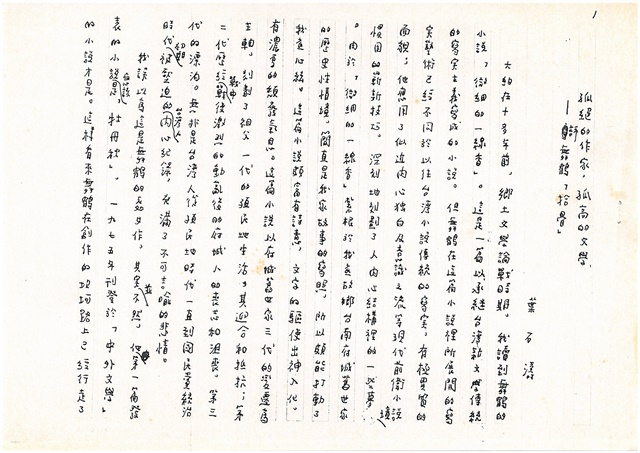 1
孤絕的作家,孤高的文學
——評舞鶴「拾骨」
葉石濤
大約在十多年前,鄉土文學論戰時期,我讀到舞鶴的
小說「微細的一線香」。這是一篇以承繼台灣新文學傳統
的寫實主義寫成的小說。但舞鶴在這篇小說裡所展開的寫
實藝術已經不同於以往台灣小說傳統的寫實,有極異質的
面貌;他應用了似近內心獨白及意識之流等現代前衛小說
慣用的嶄新技巧,深刻地刻劃了人內心結構裡的一些夢境
。由於「微細的一線香」紮根於我底故鄉台南府城舊世家
的歷史性情境,簡直是我家故事的寫照,所以頗能打動了
我底心絃。這篇小說頗富有詩意,文字的驅使出神入化。
有濃厚的頹廢氣息。這篇小說以府城舊世家三代的變遷為
主軸,刻劃了祖父一代的殖民地生活,其迎合和抵抗;第
二代歷經戰中戰後激烈的動亂後的府城人的喪志和沮喪。第三
代的漂泊。無非是台灣人從殖民地時代一直到國民黨統治
時代初期被塑造的台灣人內心紀錄,充滿了不可言喻的悲情。
我誤以為這是舞鶴的處女作。其實並不然,他第一篇發
表的小說應該是「牡丹秋」,一九七五年刊登於「中外文學」
的小說才是。這樣看來舞鶴在創作的坎坷路上已經行走了